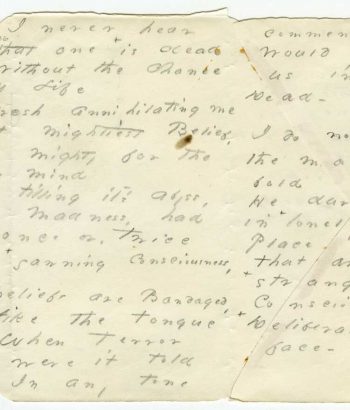 I never hear
that one is dead
without the chance
Life
resh annihilating me
mightiest Belief,
might, for the
mind
tilling it's abyss,
Madness, had
once or, Twice
+ yawning Consciousness,
eliefs are Bandaged,
like the tongue
When Terror
were it told
In any tone
commen
would
us in
Dead -
I do no
the ma
bold
He dar
in lonel
Place
that aw
strang
Consci
Delibera
face -